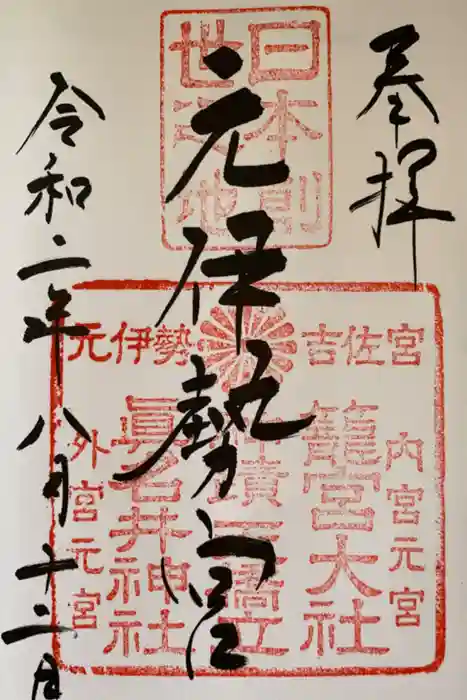 奉拝
日本創
世之地
元伊勢宮
吉佐宮
元伊勢
内宮元宮
籠宮大社
天橋立
眞名井神社
外宮元宮
令和二年八月十二日